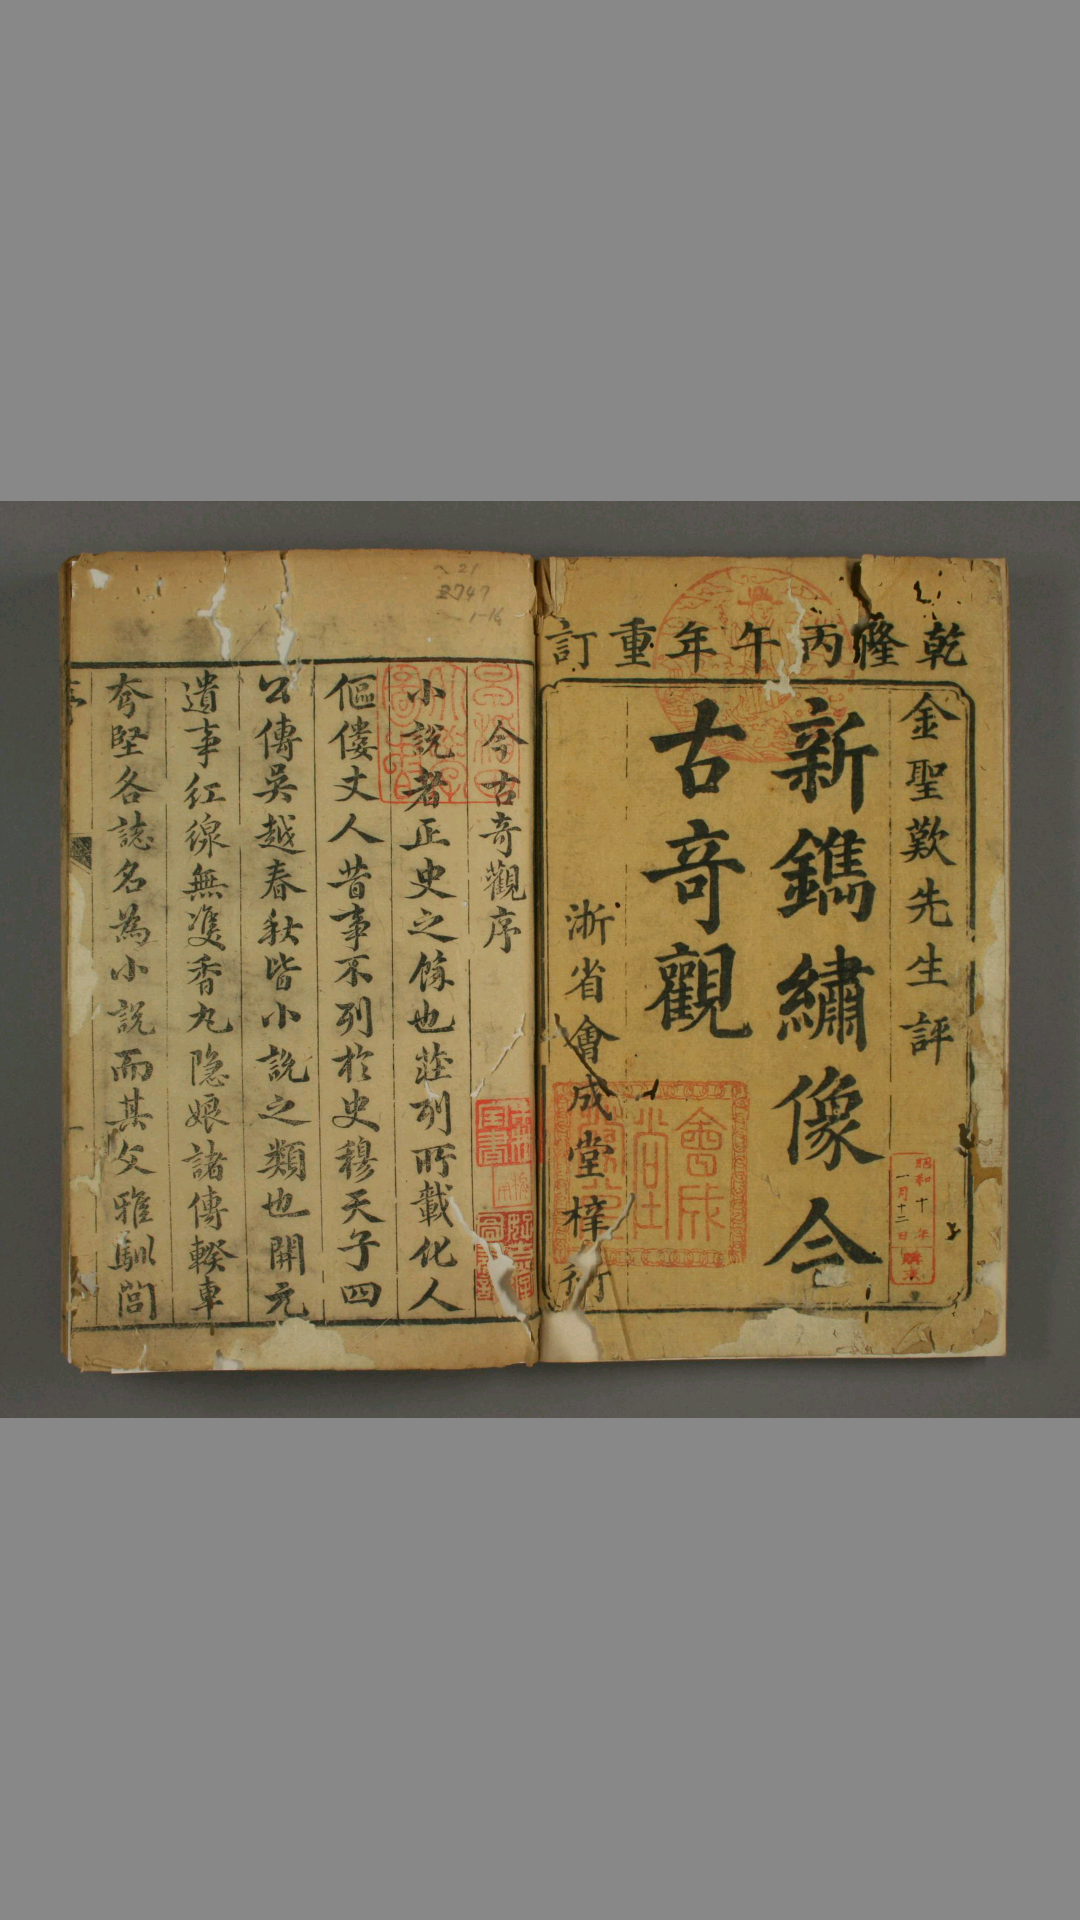 乾隆丙午年重訂
金聖歎先生評
新鐫繡像今
古奇觀
浙省會成堂梓行
昭和十年
一月十二日
購求
會成
堂
今古奇觀序
小說者正史之餘也莊列所載化人
傴僂丈人昔事不列於史穆天子四
公傳吳越春秋皆小說之類也開元
遺事紅線無雙香丸隐娘諸傳睽車
夸堅各誌名為小說而其文雅馴閭
21
2747
1-16